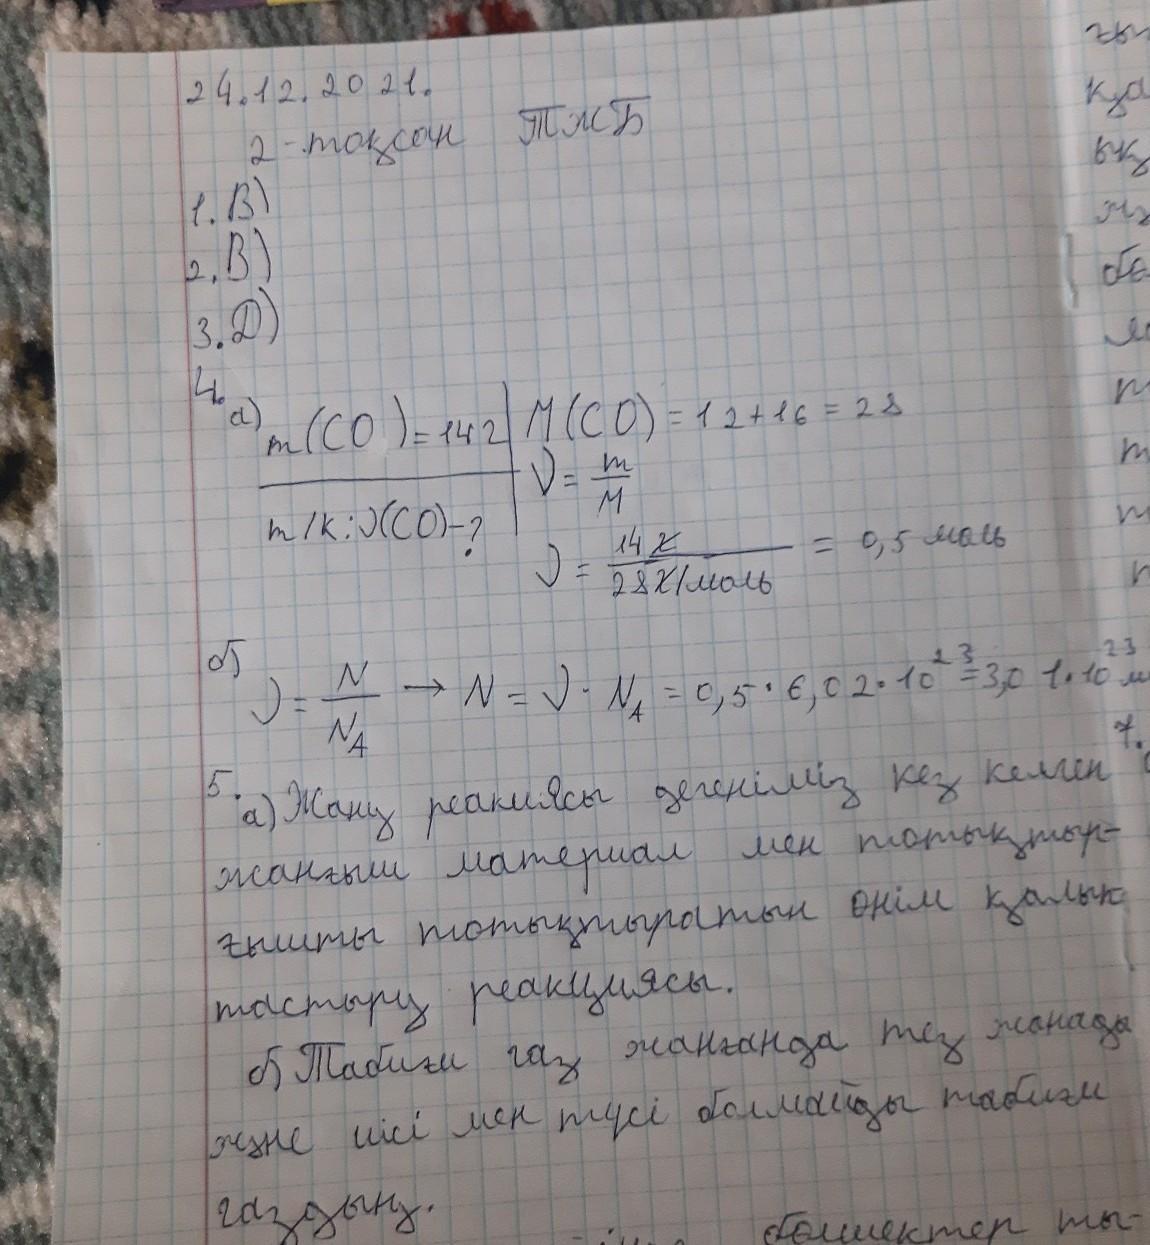 24.12.2021.
2-тоқсан ТЖБ
1. В)
2. В)
3. Д)
4.
а) m(CO)=14г M(CO)=12+16=28
ν=m/M
т/к: ν(CO)-?
ν=14г/28г/моль = 0,5 моль
б) ν=N/N_A → N=ν·N_A=0,5·6,02·10²³=3,01·10²³ м
5.
а) Жану реакиясы дегеніміз кез келген
жанғыш материал мен тотықтыр-
ғышты тотықтыратын өнім қалып
тастыру реакциясы.
б) Табиғи газ жанғанда тез жанады
және иісі мен түсі болмайды табиғи
газдың.
бөлшектер ты-
ғы
қа
ық
бе
т
т
т
7.